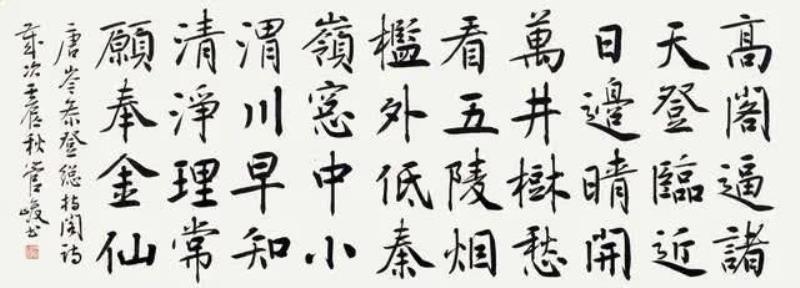 高閣逼諸
天登臨近
日邊晴開
萬井樹愁
看五陵烟
檻外低秦
嶺窓中小
渭川早知
清淨理常
願奉金仙
唐岑参登總持閣詩
歲次壬秋管峻书